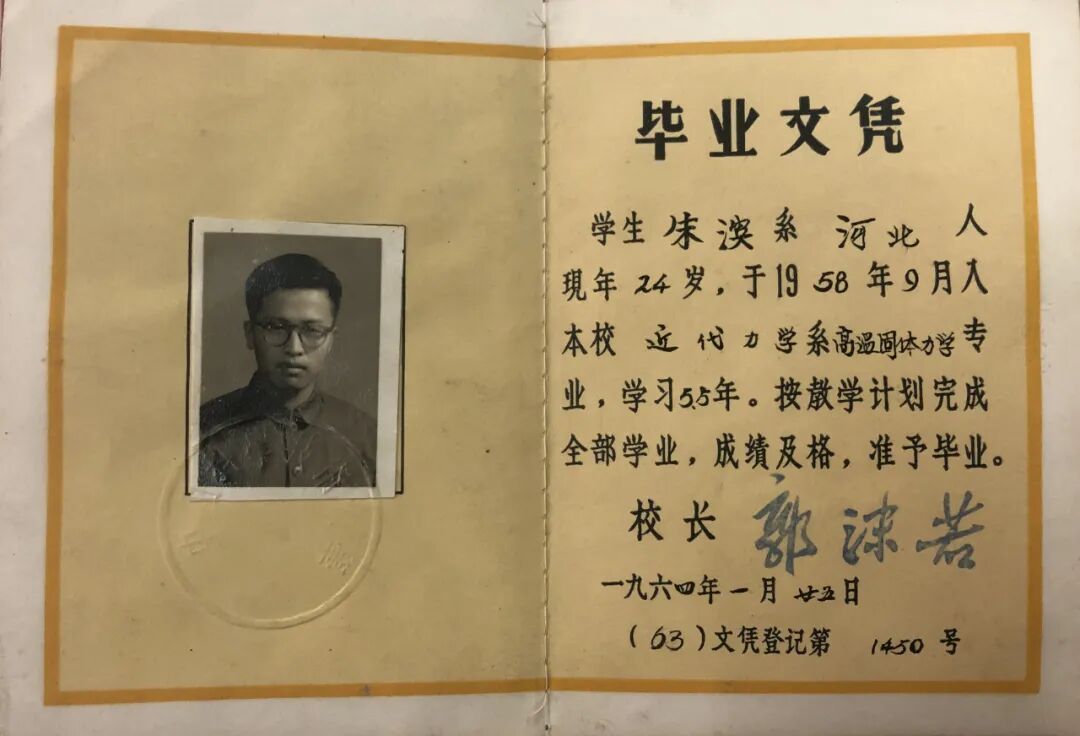 毕业文凭
学生朱滨系河北人
现年24岁，于1958年9月入
本校近代力学系高温固体力学专
业，学习5.5年。按教学计划完成
全部学业，成绩及格，准予毕业。
校长 郭沫若
一九六四年一月廿五日
(63)文凭登记第1450号